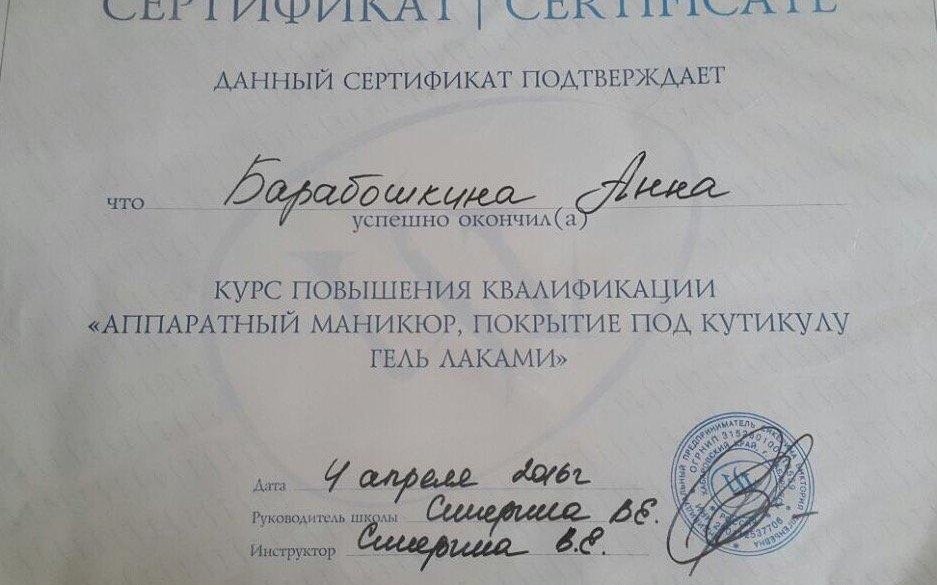 СЕРТИФИКАТ | CERTIFICATE
ДАННЫЙ СЕРТИФИКАТ ПОДТВЕРЖДАЕТ
что Барабошкина Анна
успешно окончил(а)
КУРС ПОВЫШЕНИЯ КВАЛИФИКАЦИИ
«АППАРАТНЫЙ МАНИКЮР, ПОКРЫТИЕ ПОД КУТИКУЛУ
ГЕЛЬ ЛАКАМИ»
Дата 4 апреля 2016г
Руководитель школы В.Е.
Инструктор В.Е.